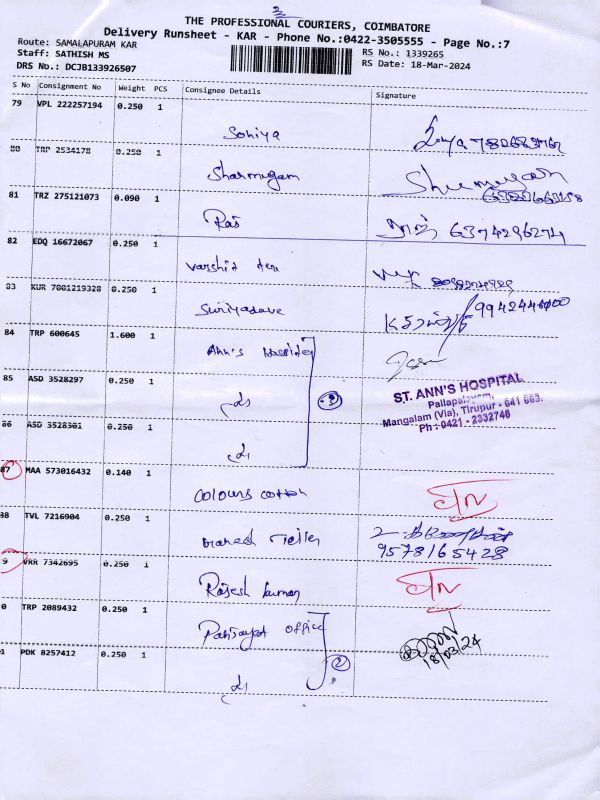 THE PROFESSIONAL COURIERS, COIMBATORE
Delivery Runsheet - KAR - Phone No.:0422-3505555 - Page No.:7
Route: SAMALAPURAM KAR
Staff: SATHISH MS
DRS No.: DCJB133926507
RS No.: 1339265
RS Date: 18-Mar-2024
S No Consignment No Weight PCS Consignee Details Signature
79 VPL 222257194 0.250 1
Soniya
80 TRP 2534178 0.250 1
Sharmugam
81 TRZ 275121073 0.090 1
Raj ராஜ் 6374296274
82 EDQ 16672067 0.250 1
Varshit
83 KUR 7001219328 0.250 1
Suriyadave 9942446000
84 TRP 600645 1.600 1
Ann's Hospital
85 ASD 3528297 0.250 1
ST. ANN'S HOSPITAL
Pallapalayam,
Mangalam (Via), Tirupur - 641 663.
Ph : 0421 - 2332746
86 ASD 3528301 0.250 1
87 MAA 573016432 0.140 1
Colours cotton
88 TVL 7216904 0.250 1
9578165428
9 VRR 7342695 0.250 1
Rajesh kumar
0 TRP 2089432 0.250 1
Panjayat office
18/03/24
1 PDK 8257412 0.250 1
2